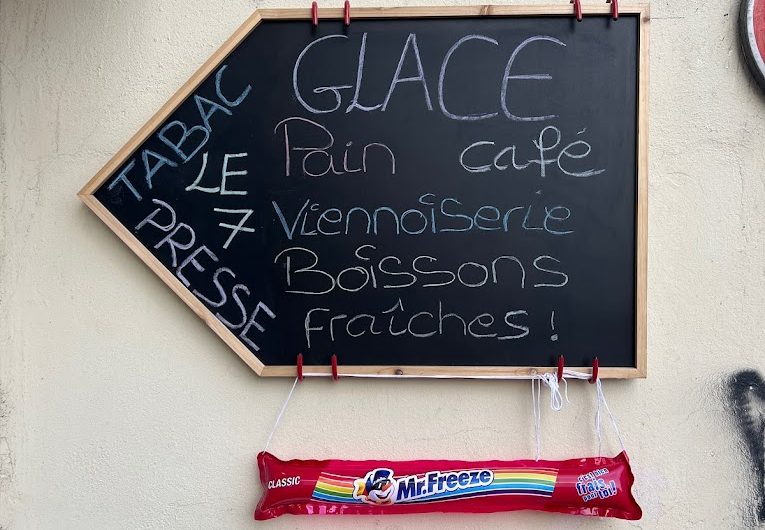 TABAC
LE
7
PRESSE
GLACE
Pain café
Viennoiserie
Boissons
Fraîches !
CLASSIC
Mr.Freeze
C'est bien
frais
pour toi!